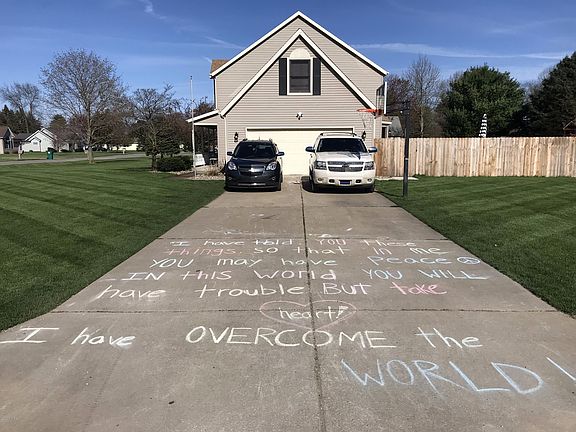 "I have told you these
things so that in me
you may have Peace
IN this World you WILL
have trouble But take
heart!
I have OVERCOME the
WORLD!